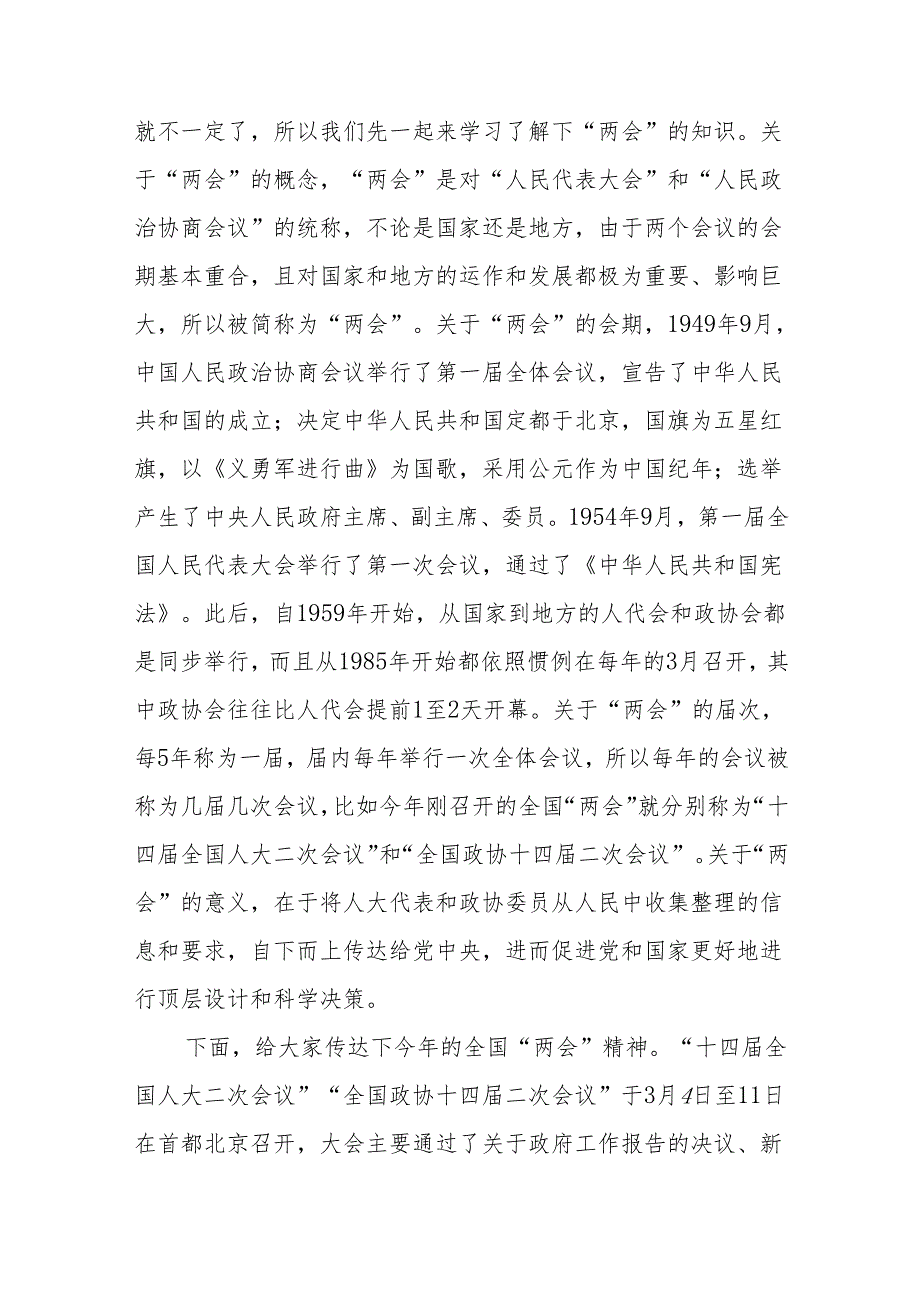 就不一定了，所以我们先一起来学习了解下“两会”的知识。关
于“两会”的概念，“两会”是对“人民代表大会”和“人民政
治协商会议”的统称，不论是国家还是地方，由于两个会议的会
期基本重合，且对国家和地方的运作和发展都极为重要、影响巨
大，所以被简称为“两会”。关于“两会”的会期，1949年9月，
中国人民政治协商会议举行了第一届全体会议，宣告了中华人民
共和国的成立；决定中华人民共和国定都于北京，国旗为五星红
旗，以《义勇军进行曲》为国歌，采用公元作为中国纪年；选举
产生了中央人民政府主席、副主席、委员。1954年9月，第一届全
国人民代表大会举行了第一次会议，通过了《中华人民共和国宪
法》。此后，自1959年开始，从国家到地方的人代会和政协会都
是同步举行，而且从1985年开始都依照惯例在每年的3月召开，其
中政协会往往比人代会提前1至2天开幕。关于“两会”的届次，
每5年称为一届，届内每年举行一次全体会议，所以每年的会议被
称为几届几次会议，比如今年刚召开的全国“两会”就分别称为“十
四届全国人大二次会议”和“全国政协十四届二次会议”。关于“两
会”的意义，在于将人大代表和政协委员从人民中收集整理的信
息和要求，自下而上传达给党中央，进而促进党和国家更好地进
行顶层设计和科学决策。
下面，给大家传达下今年的全国“两会”精神。“十四届全
国人大二次会议”“全国政协十四届二次会议”于3月4日至11日
在首都北京召开，大会主要通过了关于政府工作报告的决议、新